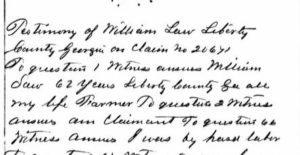 Testimony of William Law Liberty
County Georgia on Claim No 20671
To question 1 Witness answers William
Law 62 Years Liberty County Ga all
my life Farmer To question 2 Witness
answers am Claimant To question 66
Witness answers I was by hard labor